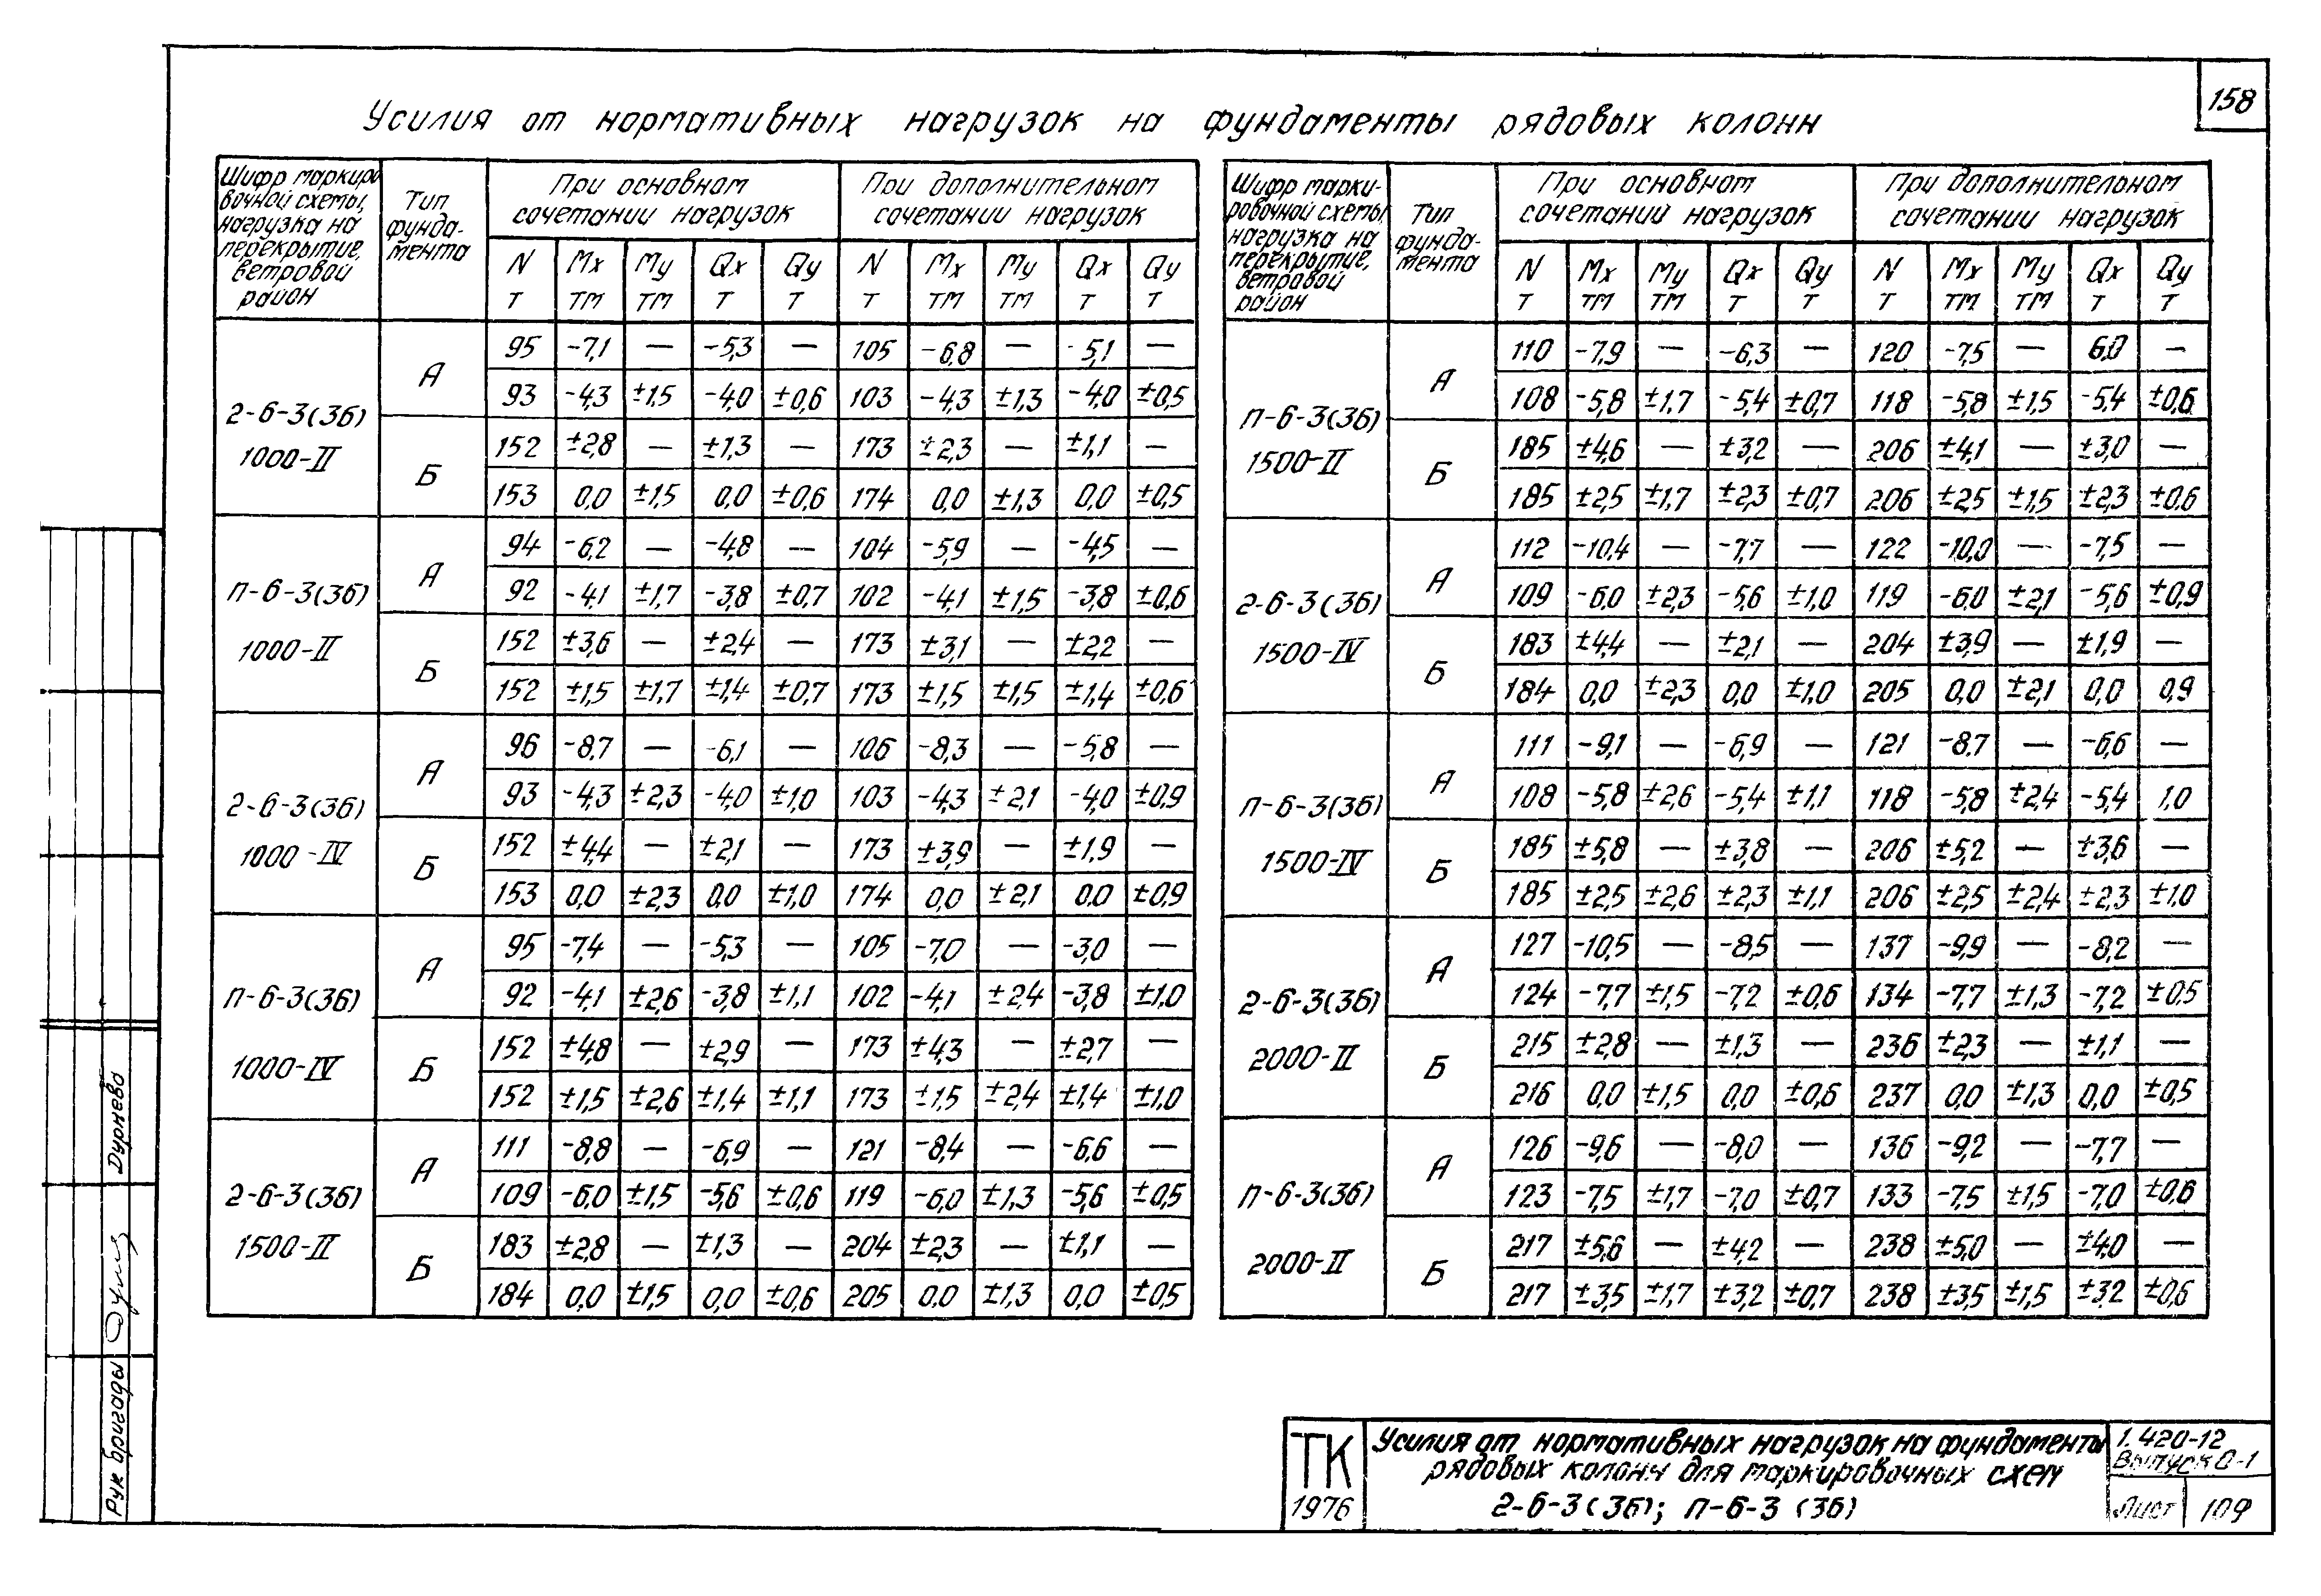 158
Усилия от нормативных нагрузок на фундаменты рядовых колонн
Шифр маркиро
вочной схемы,
нагрузка на
перекрытие,
ветровой
район
Тип
фунда-
мента
При основном
сочетании нагрузок
При дополнительном
сочетании нагрузок
N Mx My Qx Qy N Mx My Qx Qy
т тм тм т т т тм тм т т
2-6-3(3б)
1000-II
А
95 -7,1 — -5,3 — 105 -6,8 — -5,1 —
93 -4,3 ±1,5 -4,0 ±0,6 103 -4,3 ±1,3 -4,0 ±0,5
Б
152 ±2,8 — ±1,3 — 173 ±2,3 — ±1,1 —
153 0,0 ±1,5 0,0 ±0,6 174 0,0 ±1,3 0,0 ±0,5
п-6-3(3б)
1000-II
А
94 -6,2 — -4,8 — 104 -5,9 — -4,5 —
92 -4,1 ±1,7 -3,8 ±0,7 102 -4,1 ±1,5 -3,8 ±0,6
Б
152 ±3,6 — ±2,4 — 173 ±3,1 — ±2,2 —
152 ±1,5 ±1,7 ±1,4 ±0,7 173 ±1,5 ±1,5 ±1,4 ±0,6
2-6-3(3б)
1000-IV
А
96 -8,7 — -6,1 — 106 -8,3 — -5,8 —
93 -4,3 ±2,3 -4,0 ±1,0 103 -4,3 ±2,1 -4,0 ±0,9
Б
152 ±4,4 — ±2,1 — 173 ±3,9 — ±1,9 —
153 0,0 ±2,3 0,0 ±1,0 174 0,0 ±2,1 0,0 ±0,9
п-6-3(3б)
1000-IV
А
95 -7,4 — -5,3 — 105 -7,0 — -3,0 —
92 -4,1 ±2,6 -3,8 ±1,1 102 -4,1 ±2,4 -3,8 ±1,0
Б
152 ±4,8 — ±2,9 — 173 ±4,3 — ±2,7 —
152 ±1,5 ±2,6 ±1,4 ±1,1 173 ±1,5 ±2,4 ±1,4 ±1,0
2-6-3(3б)
1500-II
А
111 -8,8 — -6,9 — 121 -8,4 — -6,6 —
109 -6,0 ±1,5 -5,6 ±0,6 119 -6,0 ±1,3 -5,6 ±0,5
Б
183 ±2,8 — ±1,3 — 204 ±2,3 — ±1,1 —
184 0,0 ±1,5 0,0 ±0,6 205 0,0 ±1,3 0,0 ±0,5
Шифр марки-
ровочной схемы,
нагрузка на
перекрытие,
ветровой
район
Тип
фунда-
мента
При основном
сочетаний нагрузок
При дополнительном
сочетании нагрузок
N Mx My Qx Qy N Mx My Qx Qy
т тм тм т т т тм тм т т
п-6-3(3б)
1500-II
А
110 -7,9 — -6,3 — 120 -7,5 — 6,0 —
108 -5,8 ±1,7 -5,4 ±0,7 118 -5,8 ±1,5 -5,4 ±0,6
Б
185 ±4,6 — ±3,2 — 206 ±4,1 — ±3,0 —
185 ±2,5 ±1,7 ±2,3 ±0,7 206 ±2,5 ±1,5 ±2,3 ±0,6
2-6-3(3б)
1500-IV
А
112 -10,4 — -7,7 — 122 -10,0 — -7,5 —
109 -6,0 ±2,3 -5,6 ±1,0 119 -6,0 ±2,1 -5,6 ±0,9
Б
183 ±4,4 — ±2,1 — 204 ±3,9 — ±1,9 —
184 0,0 ±2,3 0,0 ±1,0 205 0,0 ±2,1 0,0 0,9
п-6-3(3б)
1500-IV
А
111 -9,1 — -6,9 — 121 -8,7 — -6,6 —
108 -5,8 ±2,6 -5,4 ±1,1 118 -5,8 ±2,4 -5,4 1,0
Б
185 ±5,8 — ±3,8 — 206 ±5,2 — ±3,6 —
185 ±2,5 ±2,6 ±2,3 ±1,1 206 ±2,5 ±2,4 ±2,3 ±1,0
2-6-3(3б)
2000-II
А
127 -10,5 — -8,5 — 137 -9,9 — -8,2 —
124 -7,7 ±1,5 -7,2 ±0,6 134 -7,7 ±1,3 -7,2 ±0,5
Б
215 ±2,8 — ±1,3 — 236 ±2,3 — ±1,1 —
216 0,0 ±1,5 0,0 ±0,6 237 0,0 ±1,3 0,0 ±0,5
п-6-3(3б)
2000-II
А
126 -9,6 — -8,0 — 136 -9,2 — -7,7 —
123 -7,5 ±1,7 -7,0 ±0,7 133 -7,5 ±1,5 -7,0 ±0,6
Б
217 ±5,6 — ±4,2 — 238 ±5,0 — ±4,0 —
217 ±3,5 ±1,7 ±3,2 ±0,7 238 ±3,5 ±1,5 ±3,2 ±0,6
Рук бригады Дурнево
ТК
1976
Усилия от нормативных нагрузок на фундаменты
рядовых колонн для маркировочных схем
2-6-3(3б); п-6-3 (3б)
1.420-12
Выпуск 0-1
Лист 109